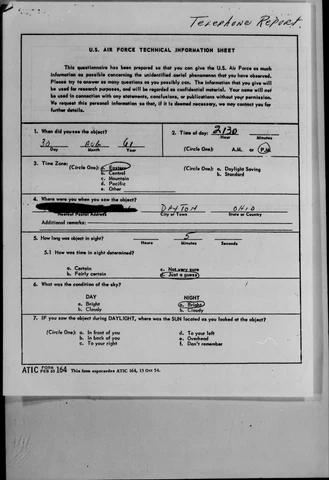 Telephone Report.
U.S. AIR FORCE TECHNICAL INFORMATION SHEET
This questionnaire has been prepared so that you can give the U.S. Air Force as much
information as possible concerning the unidentified aerial phenomenon that you have observed.
Please try to answer as many questions as you possibly can. The information that you give will
be used for research purposes, and will be regarded as confidential material. Your name will not
be used in connection with any statements, conclusions, or publications without your permission.
We request this personal information so that, if it is deemed necessary, we may contact you for
further details.
1. When did you see the object?
30 Aug 61
Day Month Year
2. Time of day: 2130
Hour Minutes
(Circle One): A.M. or P.M.
3. Time Zone:
(Circle One): a. Eastern
b. Central
c. Mountain
d. Pacific
e. Other
(Circle One): a. Daylight Saving
b. Standard
4. Where were you when you saw the object?
DAYTON OHIO
Nearest Postal Address City or Town State or Country
Additional remarks:
5. How long was object in sight? 5
Hours Minutes Seconds
5.1 How was time in sight determined?
a. Certain c. Not very sure
b. Fairly certain d. Just a guess
6. What was the condition of the sky?
DAY NIGHT
a. Bright a. Bright
b. Cloudy b. Cloudy
7. IF you saw the object during DAYLIGHT, where was the SUN located as you looked at the object?
(Circle One): a. In front of you d. To your left
b. In back of you e. Overhead
c. To your right f. Don't remember
ATIC FORM 164 This form supersedes ATIC 164, 13 Oct 54.